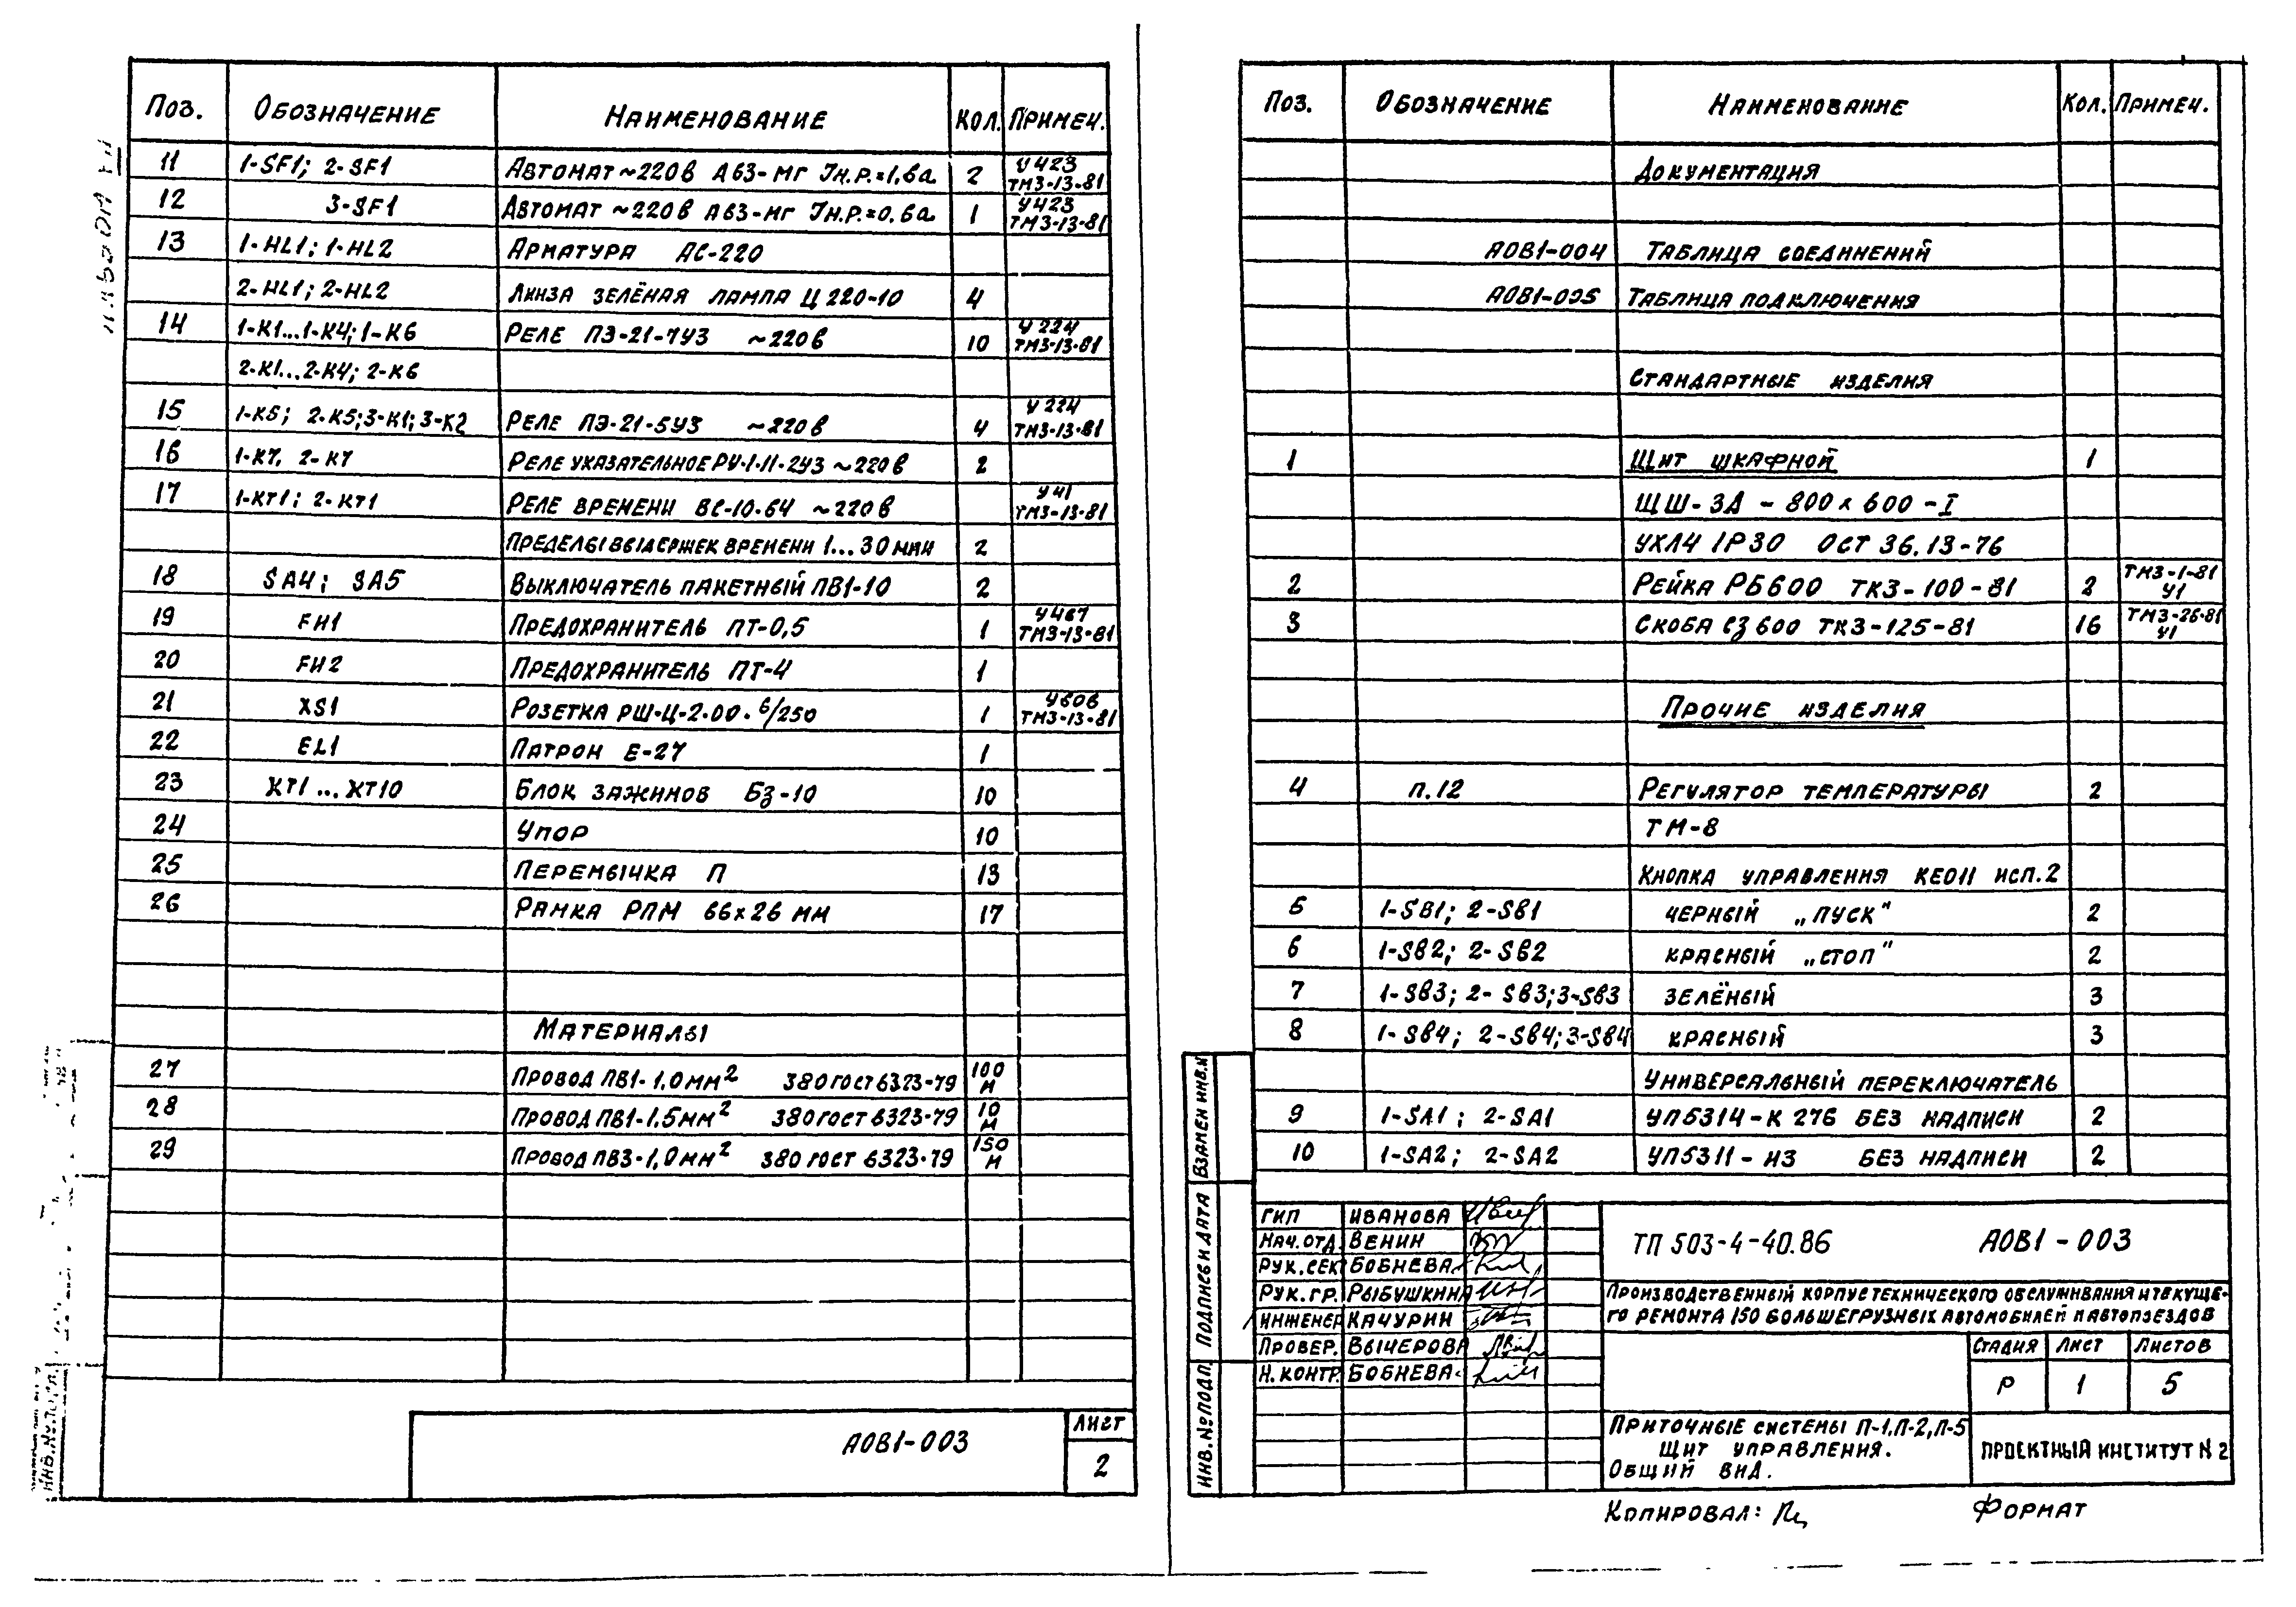 Поз. Обозначение Наименование Кол. Примеч.
11 1-SF1; 2-SF1 Автомат ~220в А63-МГ Jн.р.=1,6а 2 У423 ТМ3-13-81
12 3-SF1 Автомат ~220в А63-МГ Jн.р.=0,6а 1 У423 ТМ3-13-81
13 1-HL1; 1-HL2 Арматура АС-220
2-HL1; 2-HL2 Линза зелёная лампа Ц220-10 4
14 1-К1...1-К4; 1-К6 Реле ПЭ-21-7У3 ~220в 10 У224 ТМ3-13-81
2-К1...2-К4; 2-К6
15 1-К5; 2-К5; 3-К1; 3-К2 Реле ПЭ-21-5У3 ~220в 4 У224 ТМ3-13-81
16 1-К7, 2-К7 Реле указательное РУ-1-11-2У3 ~220в 2
17 1-КТ1; 2-КТ1 Реле времени ВС-10-64 ~220в У41 ТМ3-13-81
Пределы выдержек времени 1...30 мин 2
18 SA4; SA5 Выключатель пакетный ПВ1-10 2
19 FH1 Предохранитель ПТ-0,5 1 У467 ТМ3-13-81
20 FH2 Предохранитель ПТ-4 1
21 XS1 Розетка РШ-Ц-2.00-6/250 1 У606 ТМ3-13-81
22 EL1 Патрон Е-27 1
23 ХТ1...ХТ10 Блок зажимов БЗ-10 10
24 Упор 10
25 Перемычка П 13
26 Рамка РПМ 66х26 мм 17
Материалы
27 Провод ПВ1-1,0мм² 380 ГОСТ 6323-79 100 м
28 Провод ПВ1-1,5мм² 380 ГОСТ 6323-79 10 м
29 Провод ПВ3-1,0мм² 380 ГОСТ 6323-79 150 м
АОВ1-003
Лист
2
Поз. Обозначение Наименование Кол. Примеч.
Документация
АОВ1-004 Таблица соединений
АОВ1-005 Таблица подключения
Стандартные изделия
1 Щит шкафной 1
ЩШ-3А-800х600-I
УХЛ4 IP30 ОСТ 36.13-76
2 Рейка РБ600 ТК3-100-81 2 ТМ3-1-81 У1
3 Скоба СЗ 600 ТК3-125-81 16 ТМ3-26-81 У1
Прочие изделия
4 п.12 Регулятор температуры 2
ТМ-8
Кнопка управления КЕ011 исп.2
5 1-SB1; 2-SB1 черный „пуск" 2
6 1-SB2; 2-SB2 красный „стоп" 2
7 1-SB3; 2-SB3; 3-SB3 зелёный 3
8 1-SB4; 2-SB4; 3-SB4 красный 3
Универсальный переключатель
9 1-SA1; 2-SA1 УП5314-К276 без надписи 2
10 1-SA2; 2-SA2 УП5311-И3 без надписи 2
Взамен инв.№
Подпись и дата
Инв.№подл.
ГИП Иванова
Нач.отд. Венин
Рук.сек Бобнева
Рук.гр. Рыбушкина
Инженер Качурин
Провер. Вычерова
Н.контр. Бобнева
ТП 503-4-40.86 АОВ1-003
Производственный корпус технического обслуживания и текуще-
го ремонта 150 большегрузных автомобилей и автопоездов
Стадия Лист Листов
Р 1 5
Приточные системы П-1,П-2,П-5
Щит управления.
Общий вид.
Проектный институт №2
Копировал:
Формат